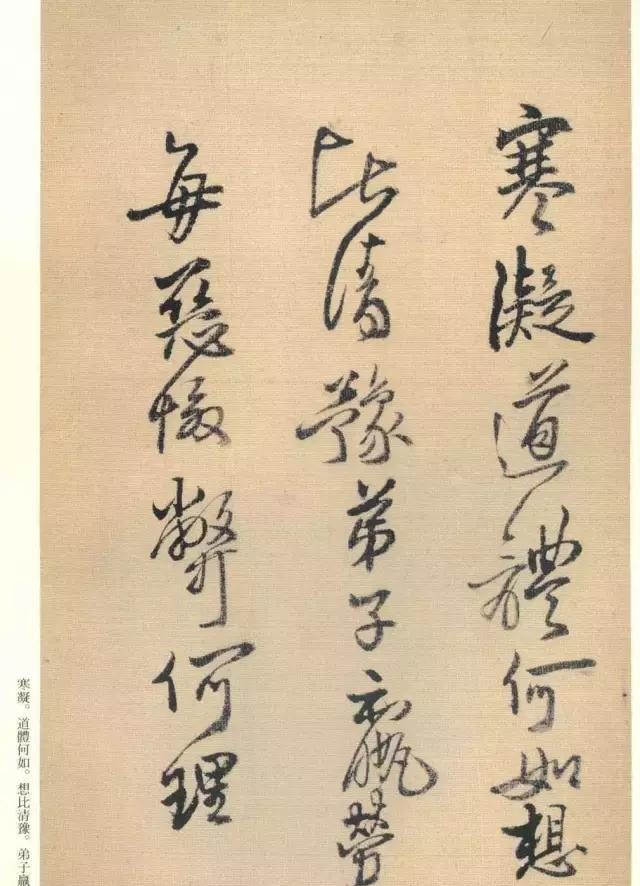 寒凝道體何如想
比清豫弟子羸勞
每弊何理
寒凝。道體何如。想比清豫。弟子羸